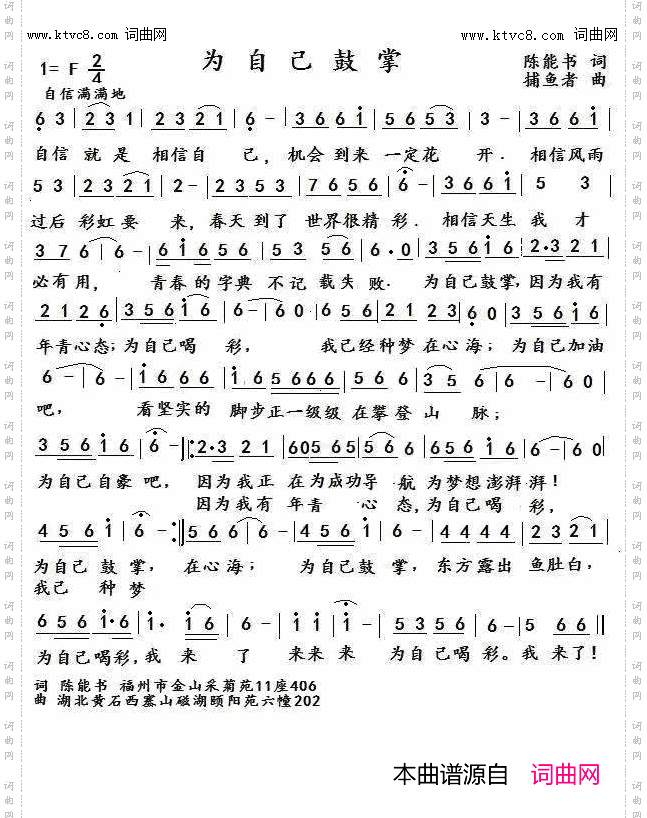 www.ktvc8.com 词曲网 www.ktvc8.com 词曲网
为自己鼓掌
1= F 2/4
陈能书 词
捕鱼者 曲
自信满满地
6 3 | 2 3 1 | 2 3 2 1 | 6 - | 3 6 6 1 | 5 6 5 3 | 3 - | 3 6 6 1 |
自信 就 是 相信自 己，机会到来 一定花 开． 相信风雨
5 3 | 2 3 2 1 | 2 - | 2 3 5 3 | 7 6 5 6 | 6 - | 3 6 6 1 | 5 3 |
过后 彩虹要 来，春天到了 世界很精 彩．相信天生 我 才
3 7 6 | 6 - | 6 1 6 5 6 | 5 3 | 5 6 | 6·0 | 3 5 6 1 6 | 2·3 2 1 |
必有用， 青春的字典 不记 载失 败． 为自己鼓掌，因为我有
2 1 2 6 | 3 5 6 1 6 | 6 - | 6 0 | 6 5 6 | 2 1 2 3 | 6 0 | 3 5 6 1 6 |
年青心态；为自己喝 彩， 我已经种梦在心海；为自己加油
6 - | 6 - | 1 6 6 6 | 1 6 | 5 6 6 6 | 5 6 6 | 3 5 | 6 - | 6 0 |
吧， 看坚实的 脚步正一级级 在攀登 山 脉；
3 5 6 1 6 | 6 - |: 2·3 2 1 | 6 0 5 6 5 | 5 6 6 | 6 5 6 1 | 6 - | 6 0 |
为自己自豪 吧， 因为我正 在为成功导 航 为梦想澎湃 湃！
因为我有 年青 心 态，为自己喝 彩，
4 5 6 1 | 6 - :| 5 6 6 | 6 - | 4 5 6 1 | 6 - | 4 4 4 4 | 2 3 2 1 |
为自己鼓 掌， 在心海； 为自己鼓 掌，东方露出 鱼肚白，
我已 种梦
6 5 6 1·6 | 1· | 1 6 | 6 - | 1 1 | 1 - | 5 3 5 6 | 6 - | 5 6 6 ||
为自己喝彩，我 来 了 来来 来 为自己喝 彩。我来了！
词 陈能书 福州市金山采菊苑11座406
曲 湖北黄石西塞山磁湖颐阳苑六幢202
本曲谱源自 词曲网